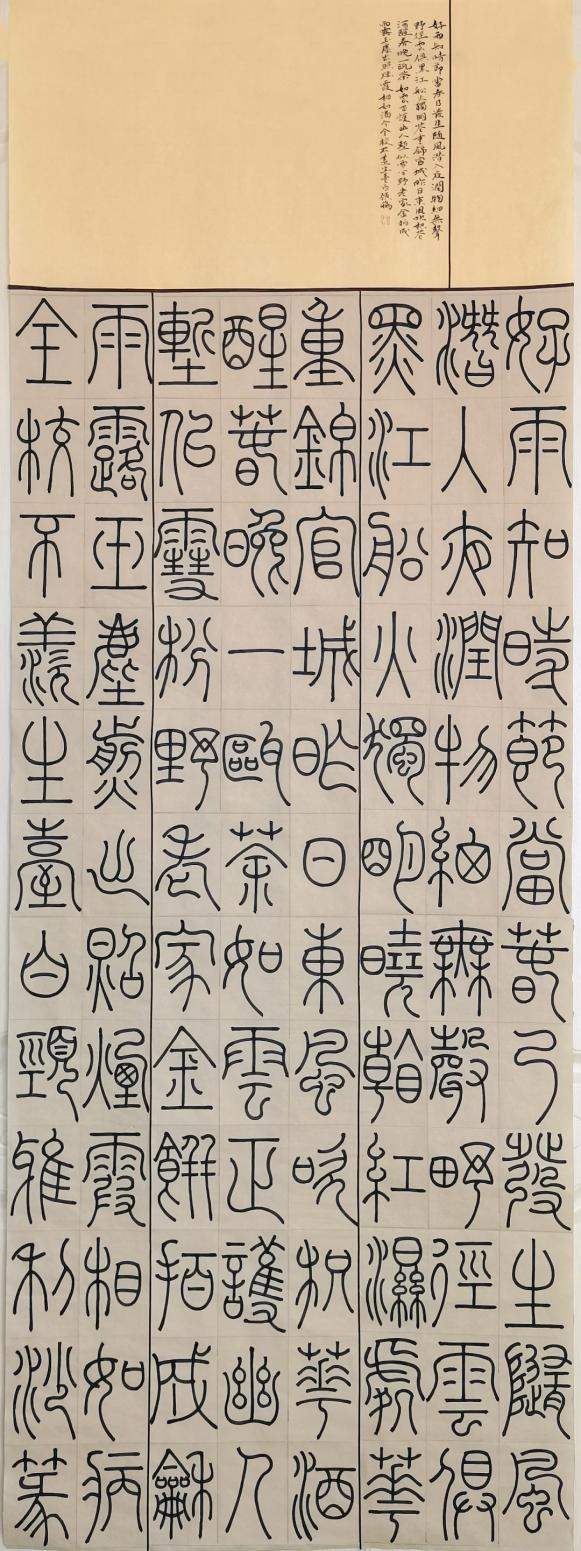 好雨知時節當春乃發生隨風潛入夜潤物細無聲
野徑雲俱黑江船火獨明花重錦官城昨日東風吹枳花
酒醒春晚一甌茶如雲正護幽人塹似雪分野老家金餅拍成
好雨知時節當春乃發生隨風
潛入夜潤物細無聲野徑雲俱
黑江船火獨明曉看紅濕處華
重錦官城昨日東風吹枳華酒
醒春晚一甌茶如雲正護幽人
塹佀雪枌野老家金餅拍成龢
雨露玉塵煎出照煙霞相如病
全校不羨生臺白頸雅利沙篆